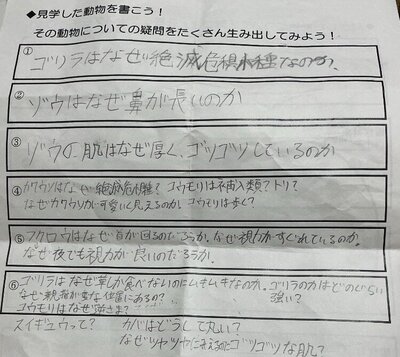 ◆見学した動物を書こう！
その動物についての疑問をたくさん生み出してみよう！
① ゴリラはなぜ絶滅危惧種なのか、
② ゾウはなぜ鼻が長いのか
③ ゾウの肌はなぜ厚く、ゴツゴツしているのか
④ カワウソはなぜ絶滅危惧種？ コウモリは哺乳類？トリ？
なぜカワウソが可愛く見えるのか、コウモリは歩く？
⑤ フクロウはなぜ首が回るのだろうか、なぜ視力がすぐれているのか、
なぜ夜でも視力が良いのだろうか、
⑥ ゴリラはなぜ草しか食べないのにムキムキなのか、ゴリラの力はどのぐらい
強い？
なぜ親指が変な位置にあるの？
コウモリはなぜ逆さま？
スイギュウって？ カバはどうして丸い？
なぜツヤツヤに見えるのにゴツゴツな肌？